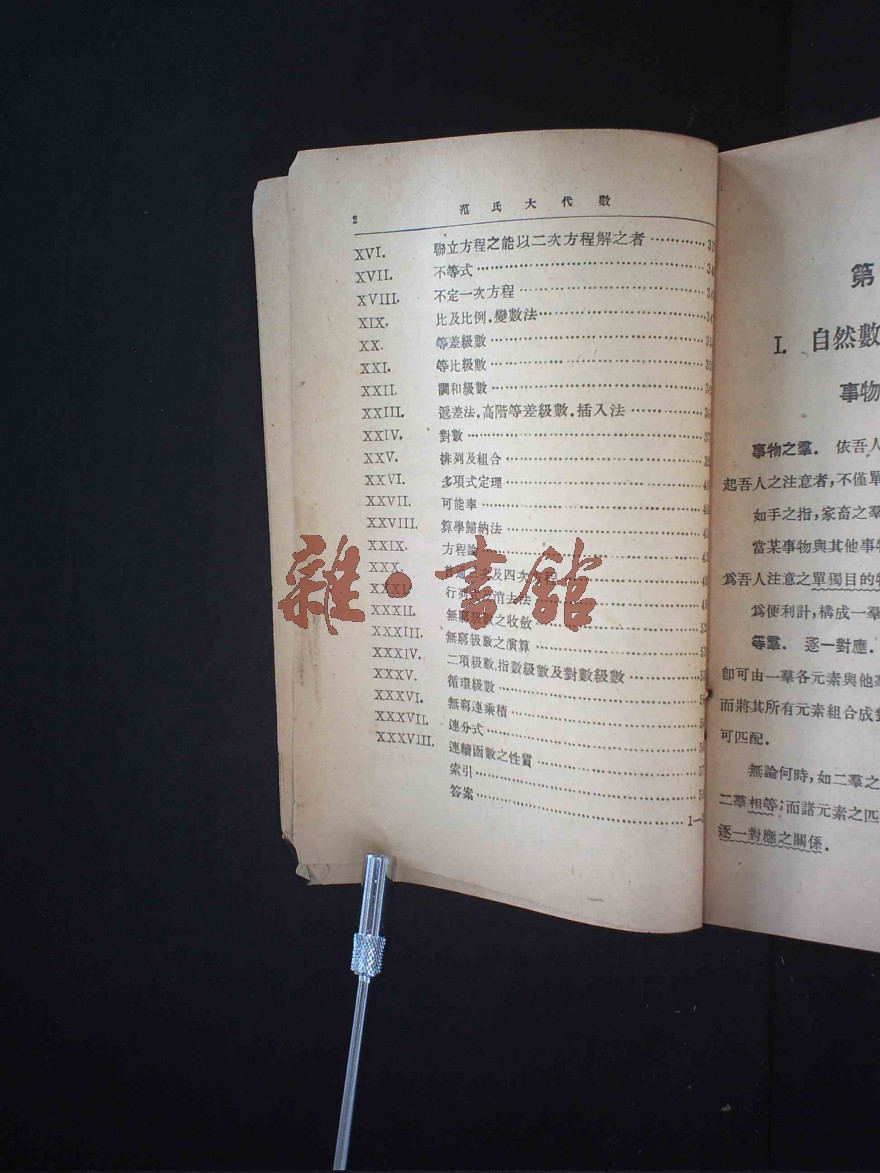 2 范氏大代數
XVI. 聯立方程之能以二次方程解之者
XVII. 不等式
XVIII. 不定一次方程
XIX. 比及比例.變數法
XX. 等差級數
XXI. 等比級數
XXII. 調和級數
XXIII. 遞差法.高階等差級數.插入法
XXIV. 對數
XXV. 排列及組合
XXVI. 多項式定理
XXVII. 可能率
XXVIII. 算學歸納法
XXIX. 方程論
XXX. 三次及四次方程
XXXI. 行列式及消去法
XXXII. 無窮級數之收斂
XXXIII. 無窮級數之演算
XXXIV. 二項級數.指數級數及對數級數
XXXV. 循環級數
XXXVI. 無窮連乘積
XXXVII. 連分式
XXXVIII. 連續函數之性質
索引
答案 1—
雜·書館
第
I. 自然數
事物
事物之羣. 依吾人
起吾人之注意者,不僅單
如手之指,家畜之羣
當某事物與其他事物
爲吾人注意之單獨目的物
爲便利計,構成一羣
等羣. 逐一對應.
卽可由一羣各元素與他羣
而將其所有元素組合成
可匹配.
無論何時,如二羣之
二羣相等;而諸元素之匹
逐一對應之關係.